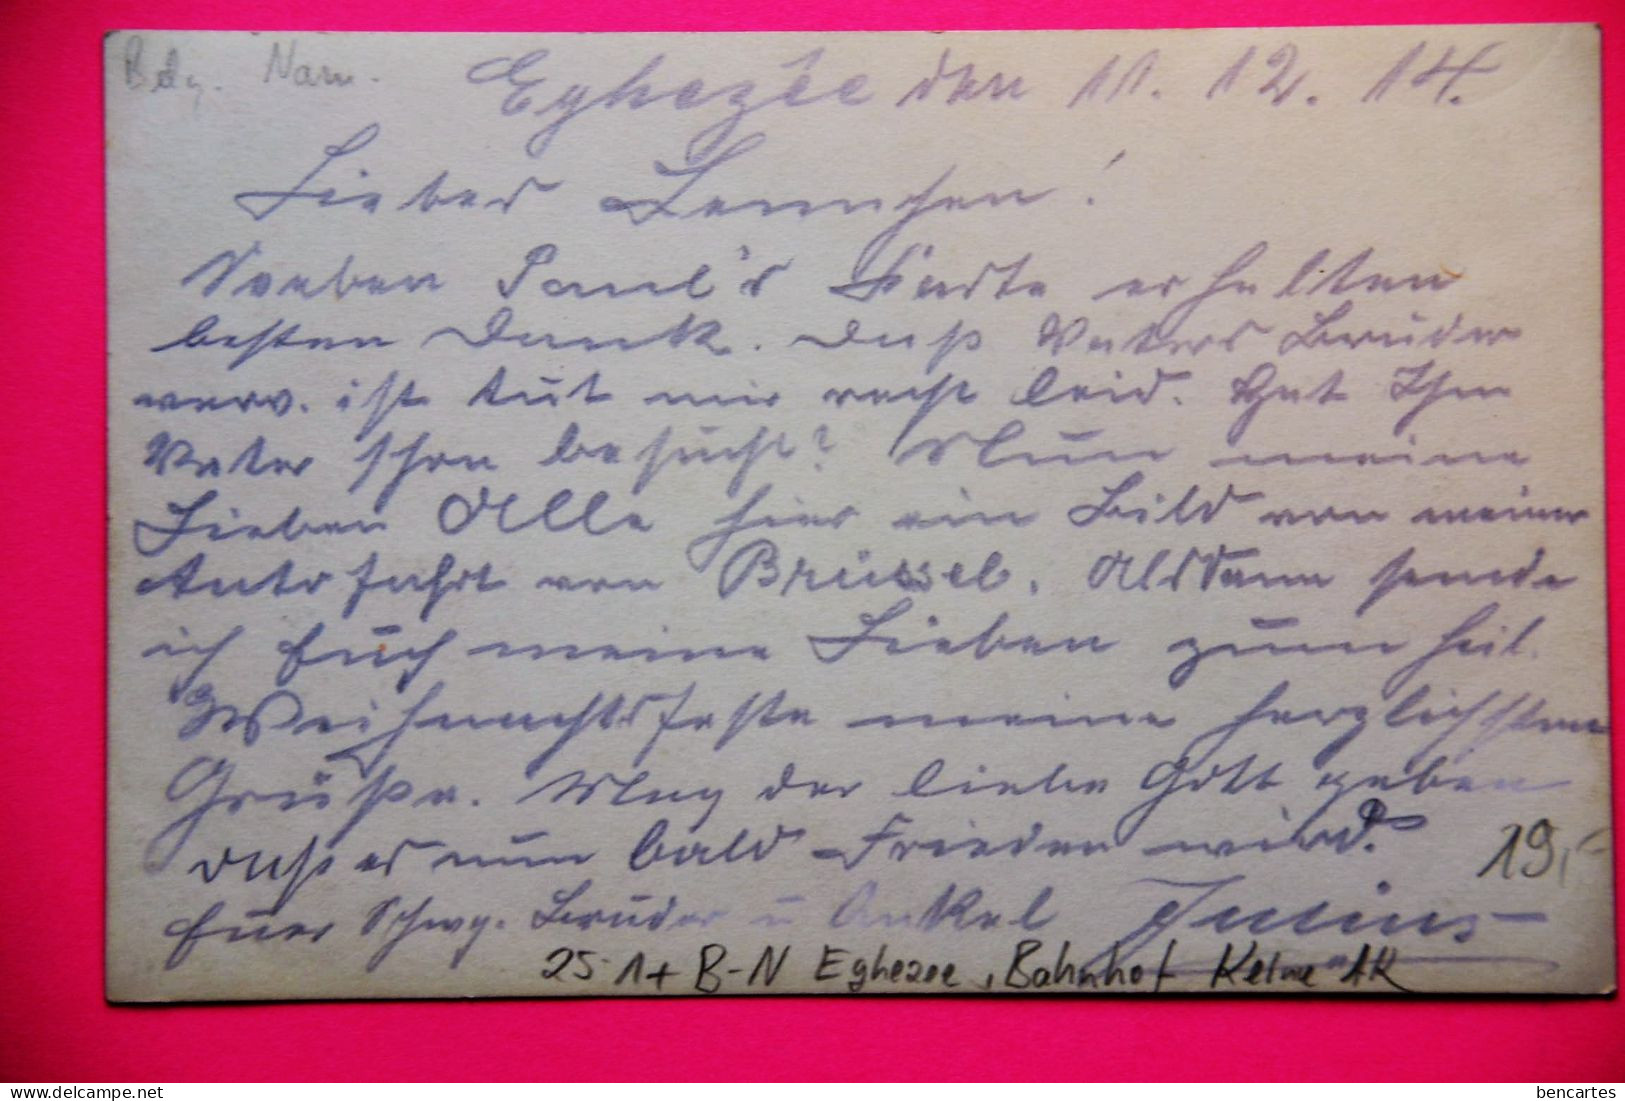 Belg. Nam.
Eghezée den 11. 12. 14.
Lieber Lennchen!
Soeben Paul's Karte erhalten
besten Dank. Daß Vaters Bruder
verw. ist tut mir recht leid. Hat Ihn
Vater schon besucht? Nun meine
Lieben Alle hier ein Bild von meiner
Autofahrt von Brüssel. Alsdann sende
ich Euch meine Lieben zum heil.
Weihnachtsfeste meine herzlichsten
Grüße. Mag der liebe Gott geben
daß es nun bald Frieden wird.
Euer Schwg. Bruder u Onkel Julius
19,-
25-1+ B-N Eghezee, Bahnhof Keine AK
bencartes